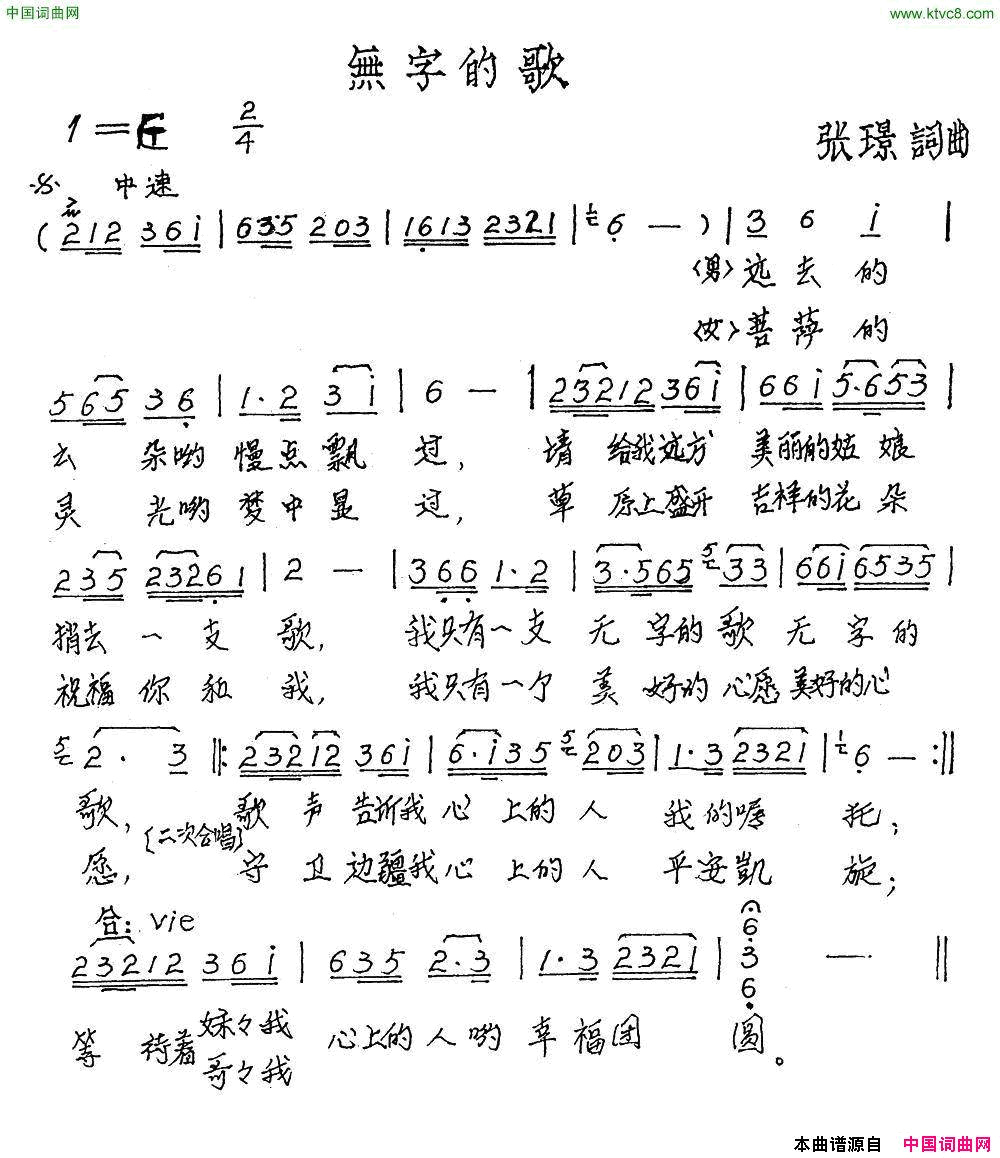 中国词曲网
www.ktvc8.com
無字的歌
1=E 2/4
张璟詞曲
中速
(212 36i | 635 203 | 1613 2321 | 6 — ) | 3 6 i |
〈男〉远去的
〈女〉菩萨的
565 36 | 1·2 3i | 6 — | 23212 36i | 66i 5·653 |
云朵哟慢点飘过,请给我远方美丽的姑娘
灵光哟梦中显过,草原上盛开吉祥的花朵
235 23261 | 2 — | 366 1·2 | 3·565 33 | 66i 6535 |
捎去一支歌,我只有一支无字的歌无字的
祝福你和我,我只有一个美好的心愿美好的心
2· 3 ‖: 23212 36i | 6·i35 203 | 1·3 2321 | 6 — :‖
歌,歌声告诉我心上的人我的嘱托;
〔二次合唱〕
愿,守卫边疆我心上的人平安凱旋;
合: Vie
23212 36i | 635 2·3 | 1·3 2321 | 6 3 6 — ‖
等待着妹々我心上的人哟幸福团圆。
哥々我
本曲谱源自 中国词曲网